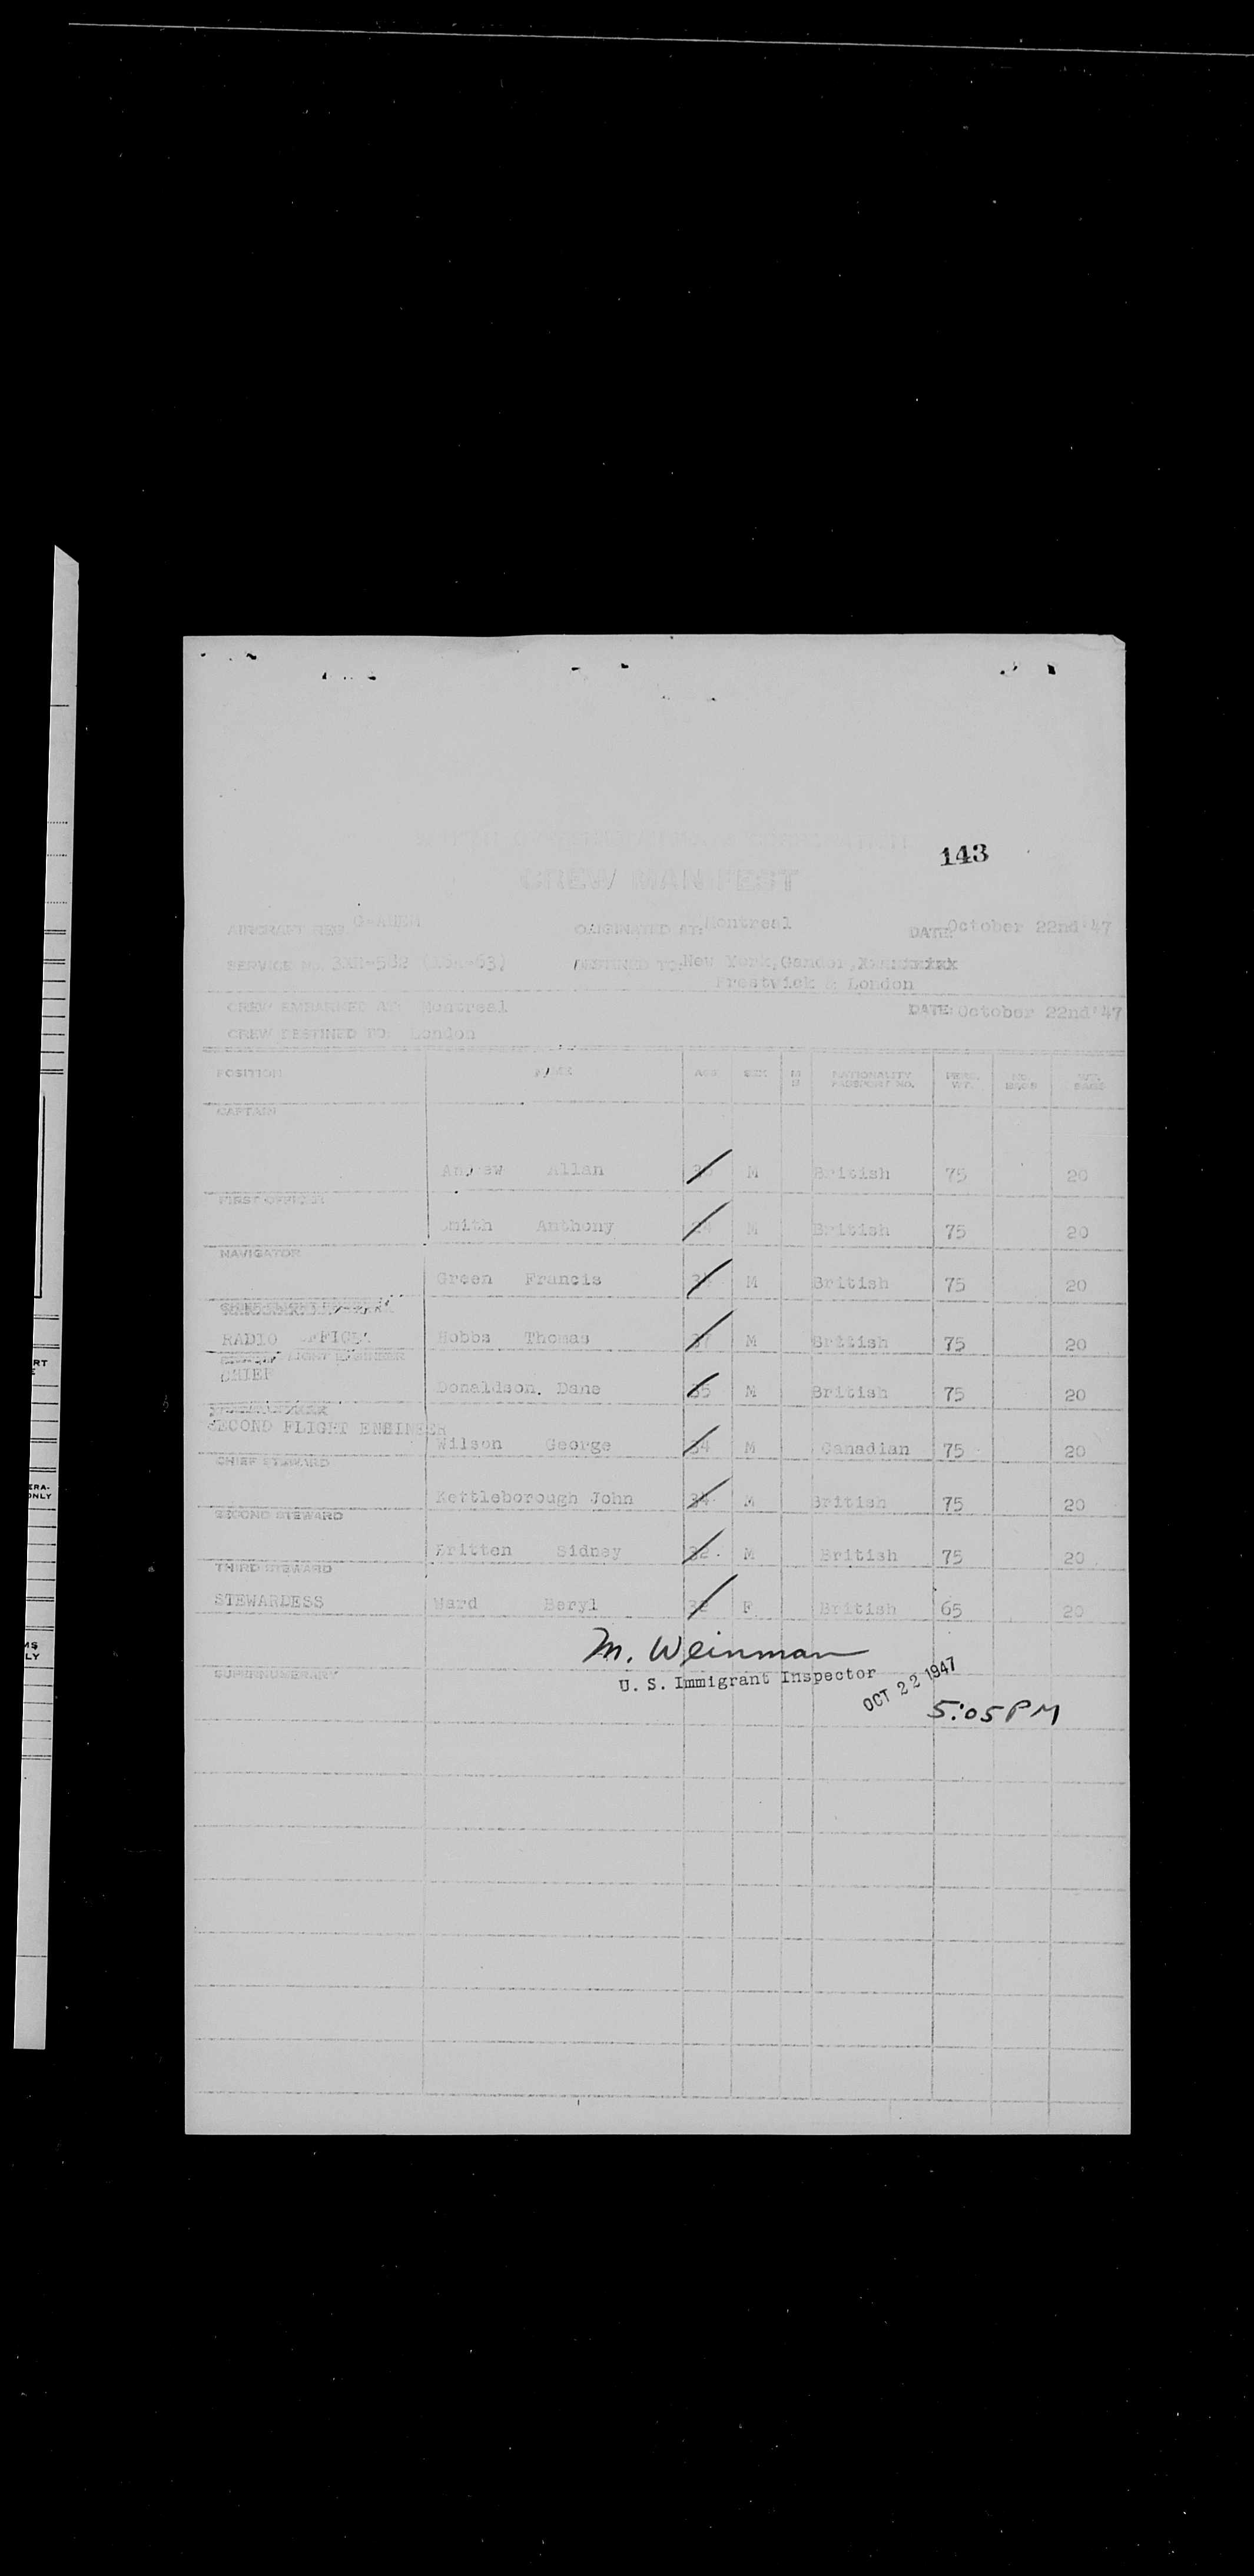 143
CREW MANIFEST
AIRCRAFT REG. ORIGINATED AT: Montreal DATE: October 22nd '47
SERVICE NO. DESTINED TO: New York, Gander,
Prestwick & London
CREW EMBARKED AT: Montreal DATE: October 22nd '47
CREW DESTINED TO: London
POSITION NAME AGE SEX NATIONALITY PASSPORT NO. PERS. WT. NO. BAGS WT. BAGS
CAPTAIN
Andrew Allan M British 75 20
FIRST OFFICER
Smith Anthony M British 75 20
NAVIGATOR
Green Francis M British 75 20
RADIO OFFICER Hobbs Thomas 37 M British 75 20
FLIGHT ENGINEER
CHIEF
Donaldson. Dane 35 M British 75 20
SECOND FLIGHT ENGINEER
Wilson George 34 M Canadian 75 20
CHIEF STEWARD
Kettleborough John 34 M British 75 20
SECOND STEWARD
Britten Sidney 32 M British 75 20
THIRD STEWARD
STEWARDESS Ward Beryl 32 F British 65 20
M. Weinman
SUPERNUMERARY
U. S. Immigrant Inspector
OCT 22 1947
5:05 PM
RT
E
ERA-
ONLY
MS
LY